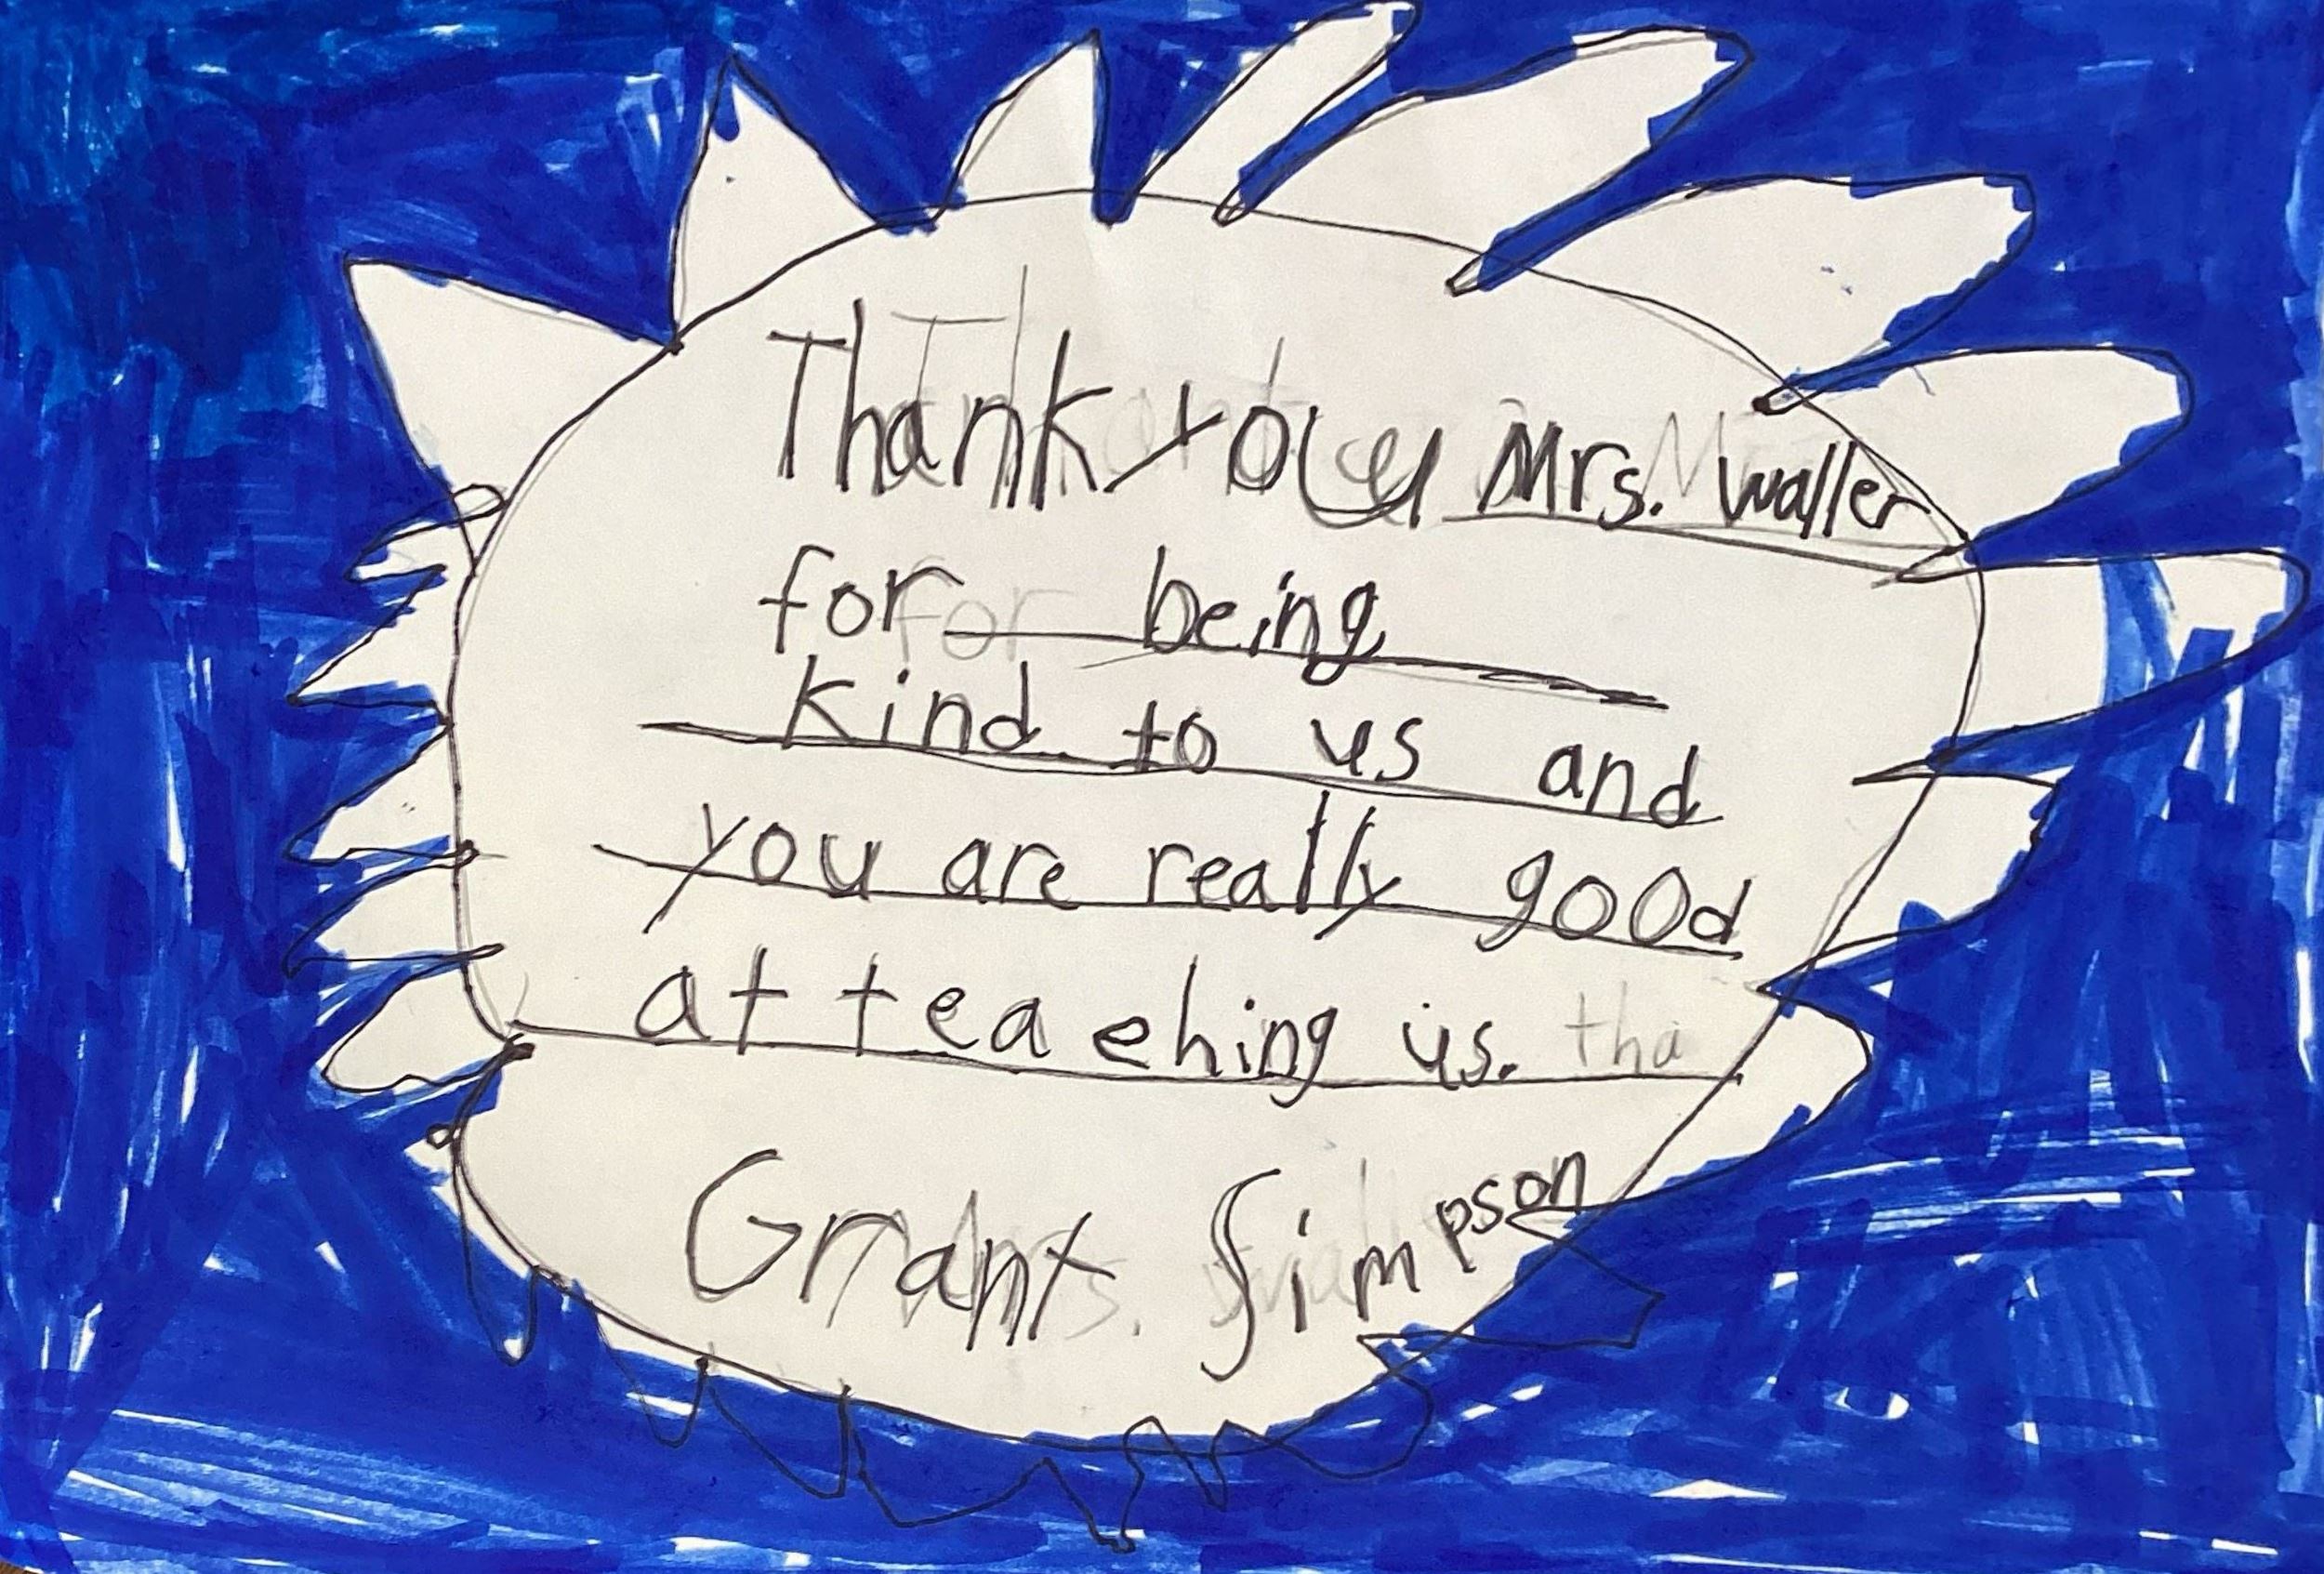 Thank you Mrs. Waller
for being
kind to us and
you are really good
at teaching us. tha
Grant Simpson